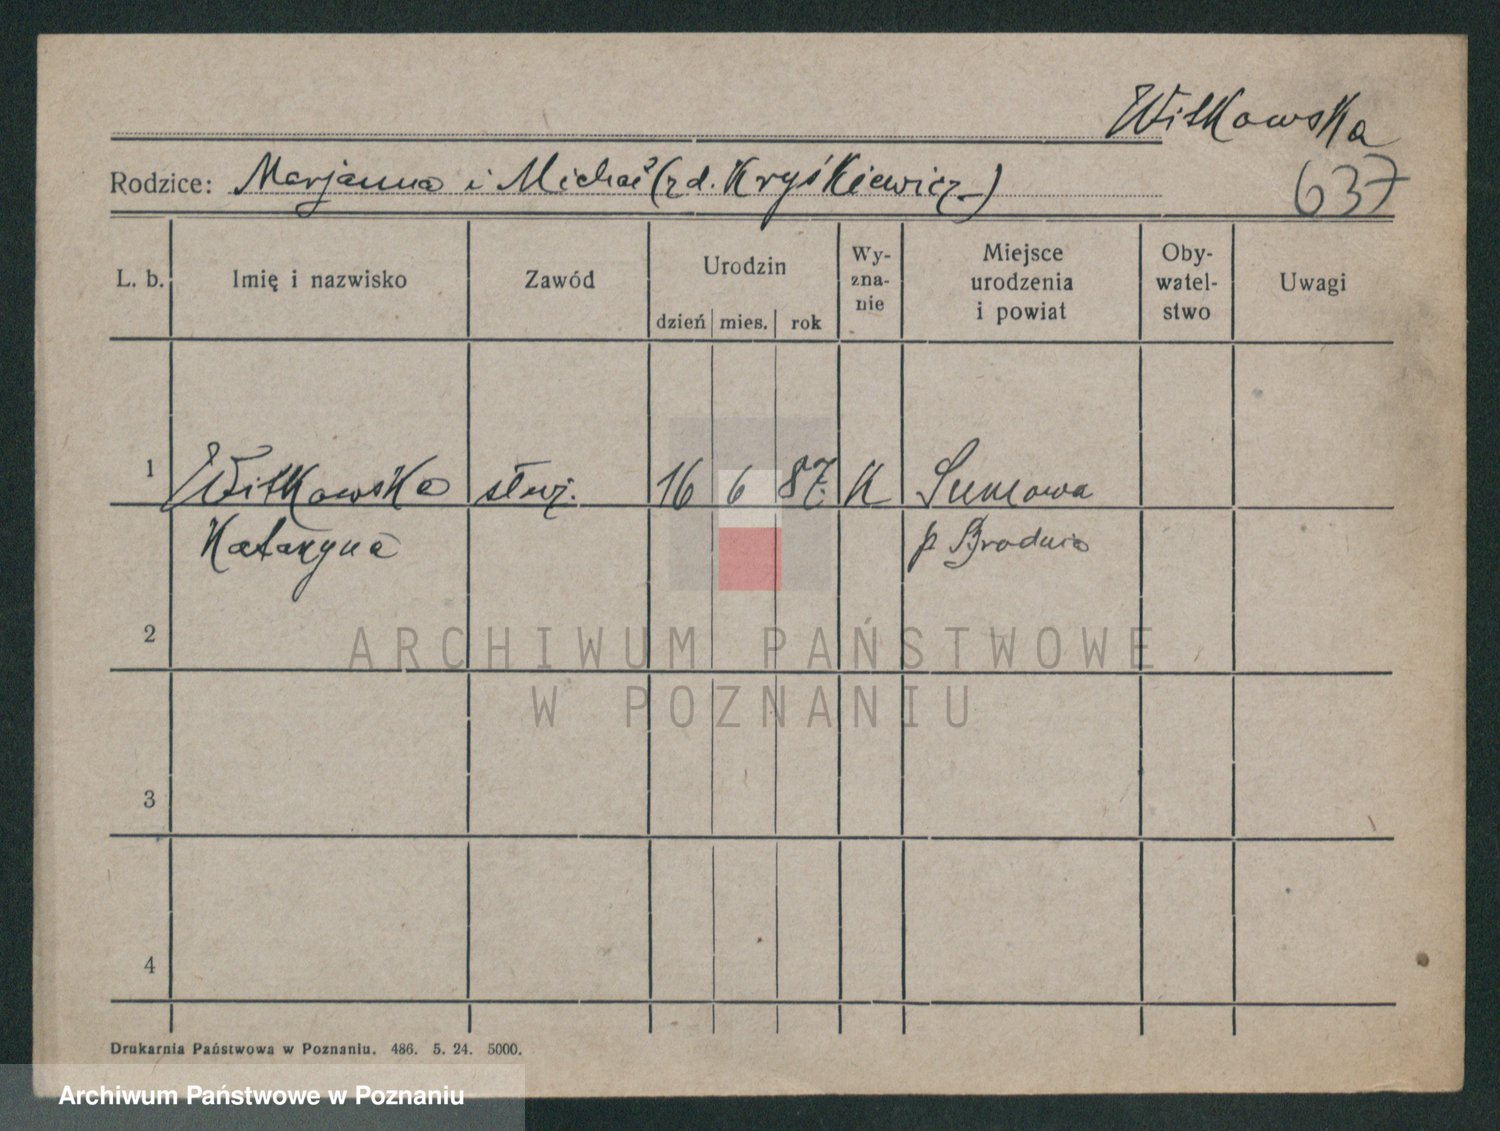 Witkowska
Rodzice: Marjanna i Michał (z d. Kryśkiewicz)
637
L. b. Imię i nazwisko Zawód Urodzin dzień mies. rok Wy-zna-nie Miejsce urodzenia i powiat Oby-watel-stwo Uwagi
1 Witkowska służ. 16 6 87. K Sumowa
Katarzyna p Brodnia
2
ARCHIWUM PAŃSTWOWE
W POZNANIU
3
4
Drukarnia Państwowa w Poznaniu. 486. 5. 24. 5000.
Archiwum Państwowe w Poznaniu